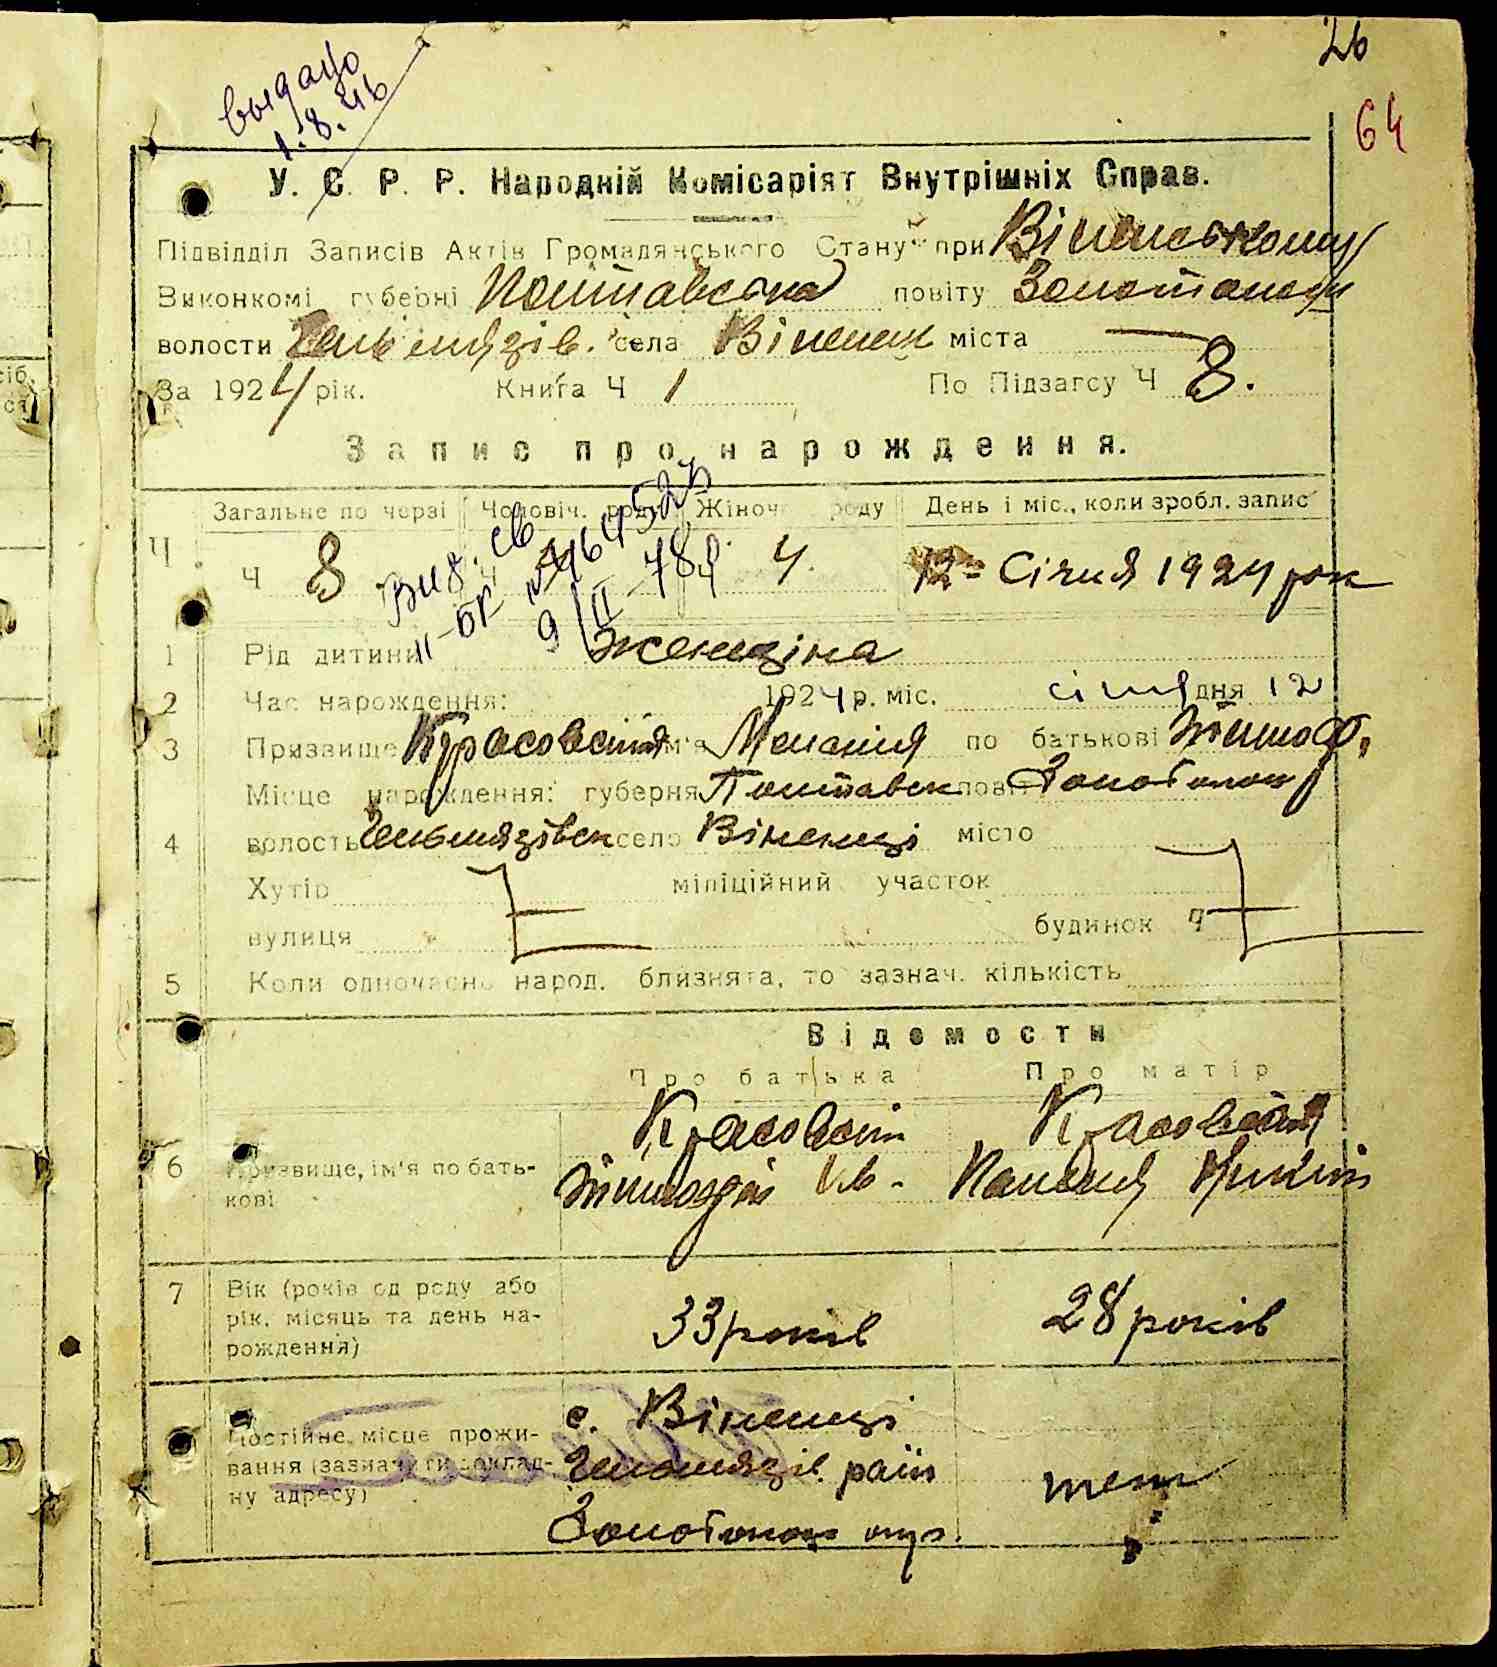 26
64
выдано
1.8.46
У. С. Р. Р. Народній Комісаріят Внутрішніх Справ.
Підвідділ Записів Актів Громадянського Стану при Віненському
Виконкомі губерні Полтавська повіту Золотоноськ
волости Гельмязів. села Віненец міста —
За 1924 рік. Книга Ч 1 По Підзагсу Ч 8.
Запис про нарождення.
Загальне по черзі Чоловіч. роду Жіноч. роду День і міс., коли зробл. запис
Ч Ч 8 4. 12 Січня 1924 рок
Вид. св
II-БК № 464523
9/II-78р.
1 Рід дитини женщіна
2 Час нарождення: 1924 р. міс. січня дня 12
3 Призвище Красовская ім'я Меланія по батькові Тимоф.
Місце нарождення: губерня Полтавськ пов. Золотонош
4 волость Гельмязівск село Віненці місто
Хутір міліційний участок
вулиця будинок Ч
5 Коли одночасно народ. близнята, то зазнач. кількість
Відомости
Про батька Про матір
Красовскій Красовская
6 Призвище, ім'я по бать- Тимофій Ів. Никит
кові
7 Вік (років од роду або
рік, місяць та день на- 33 років 28 років
рождення)
с. Віненці
Постійне місце прожи-
вання (зазначити доклад- Гельмязів. район теж
ну адресу)
Золотонош окр.